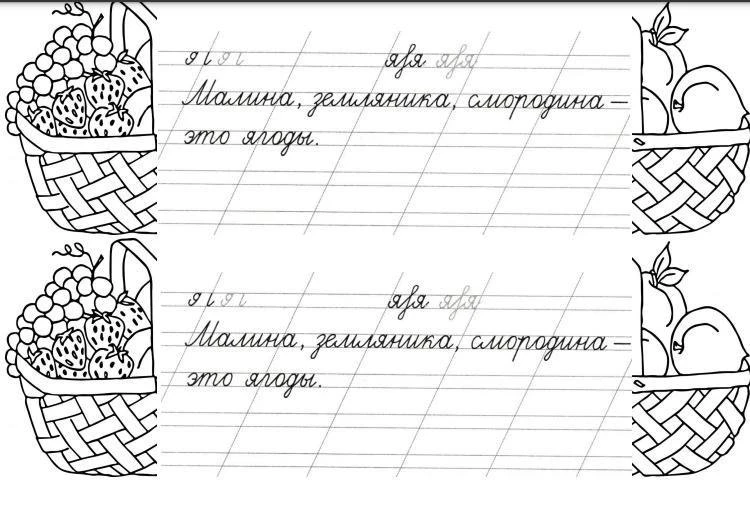 яяя яяя
Малина, земляника, смородина –
это ягоды.
яяя яяя
Малина, земляника, смородина –
это ягоды.